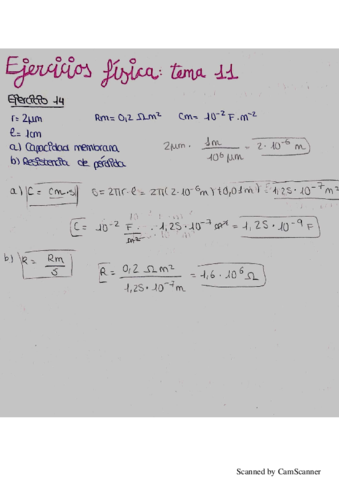 Ejercicios física: tema 11
Ejercicio 14
r = 2μm Rm = 0,2 Ωm² Cm = 10⁻² F·m⁻²
l = 1cm
a) Capacidad membrana 2μm · 1m / 10⁶ μm - 2·10⁻⁶ m
b) Resistencia de pérdida
a) C = cm·s s = 2πr·l = 2π(2·10⁻⁶m)(0,01m) = 1,25·10⁻⁷m²
C = 10⁻² F / m² · 1,25·10⁻⁷ m² = 1,25·10⁻⁹ F
b) R = Rm / S R = 0,2 Ωm² / 1,25·10⁻⁷m = 1,6·10⁶ Ω
Scanned by CamScanner